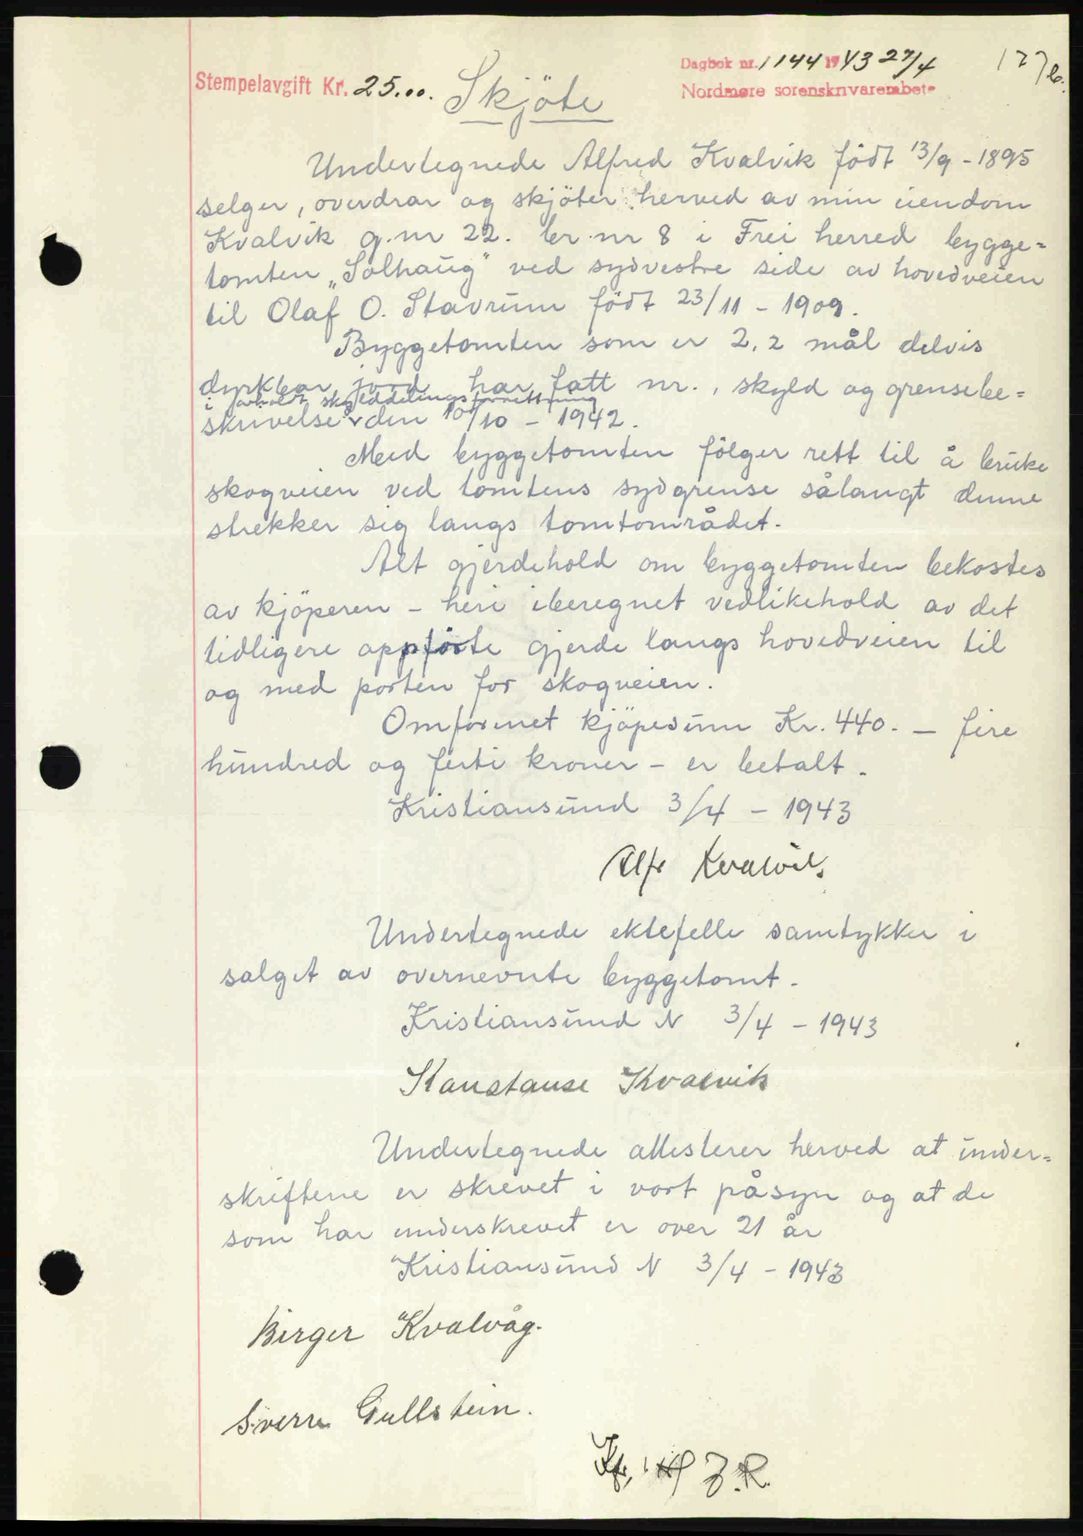 Stempelavgift Kr. 25.00.
Dagbok nr. 1144 1943 27/4
Nordmøre sorenskriverembete
Skjöte
Undertegnede Alfred Kvalvik födt 13/9 - 1895
selger, overdrar og skjöter herved av min eiendom
Kvalvik g.nr 22. br.nr 8 i Frei herred bygge=
tomten „Solhaug" ved sydvestre side av hovedveien
til Olaf O. Stavrum födt 23/11 - 1909.
Byggetomten som er 2,2 mål delvis
dyrkbar jord har fått nr., skyld og grensebe=
i avholdt skylddelingsforrettning
skrivelse den 10/10 - 1942.
Med byggetomten fölger rett til å bruke
skogveien ved tomtens sydgrense sålangt denne
strekker sig langs tomtområdet.
Alt gjerdehold om byggetomten bekostes
av kjöperen - heri iberegnet vedlikehold av det
tidligere oppförte gjerde langs hovedveien til
og med porten for skogveien.
Omforenet kjöpesum Kr. 440. - fire
hundred og førti kroner - er betalt.
Kristiansund 3/4 - 1943
Alfr Kvalvik.
Undertegnede ektefelle samtykker i
salget av overnevnte byggetomt.
Kristiansund N 3/4 - 1943
Konstanse Kvalvik
Undertegnede attesterer herved at under=
skriftene er skrevet i vort påsyn og at de
som har underskrevet er over 21 år
Kristiansund N 3/4 - 1943
Birger Kvalvåg.
Sverre Gullstein.